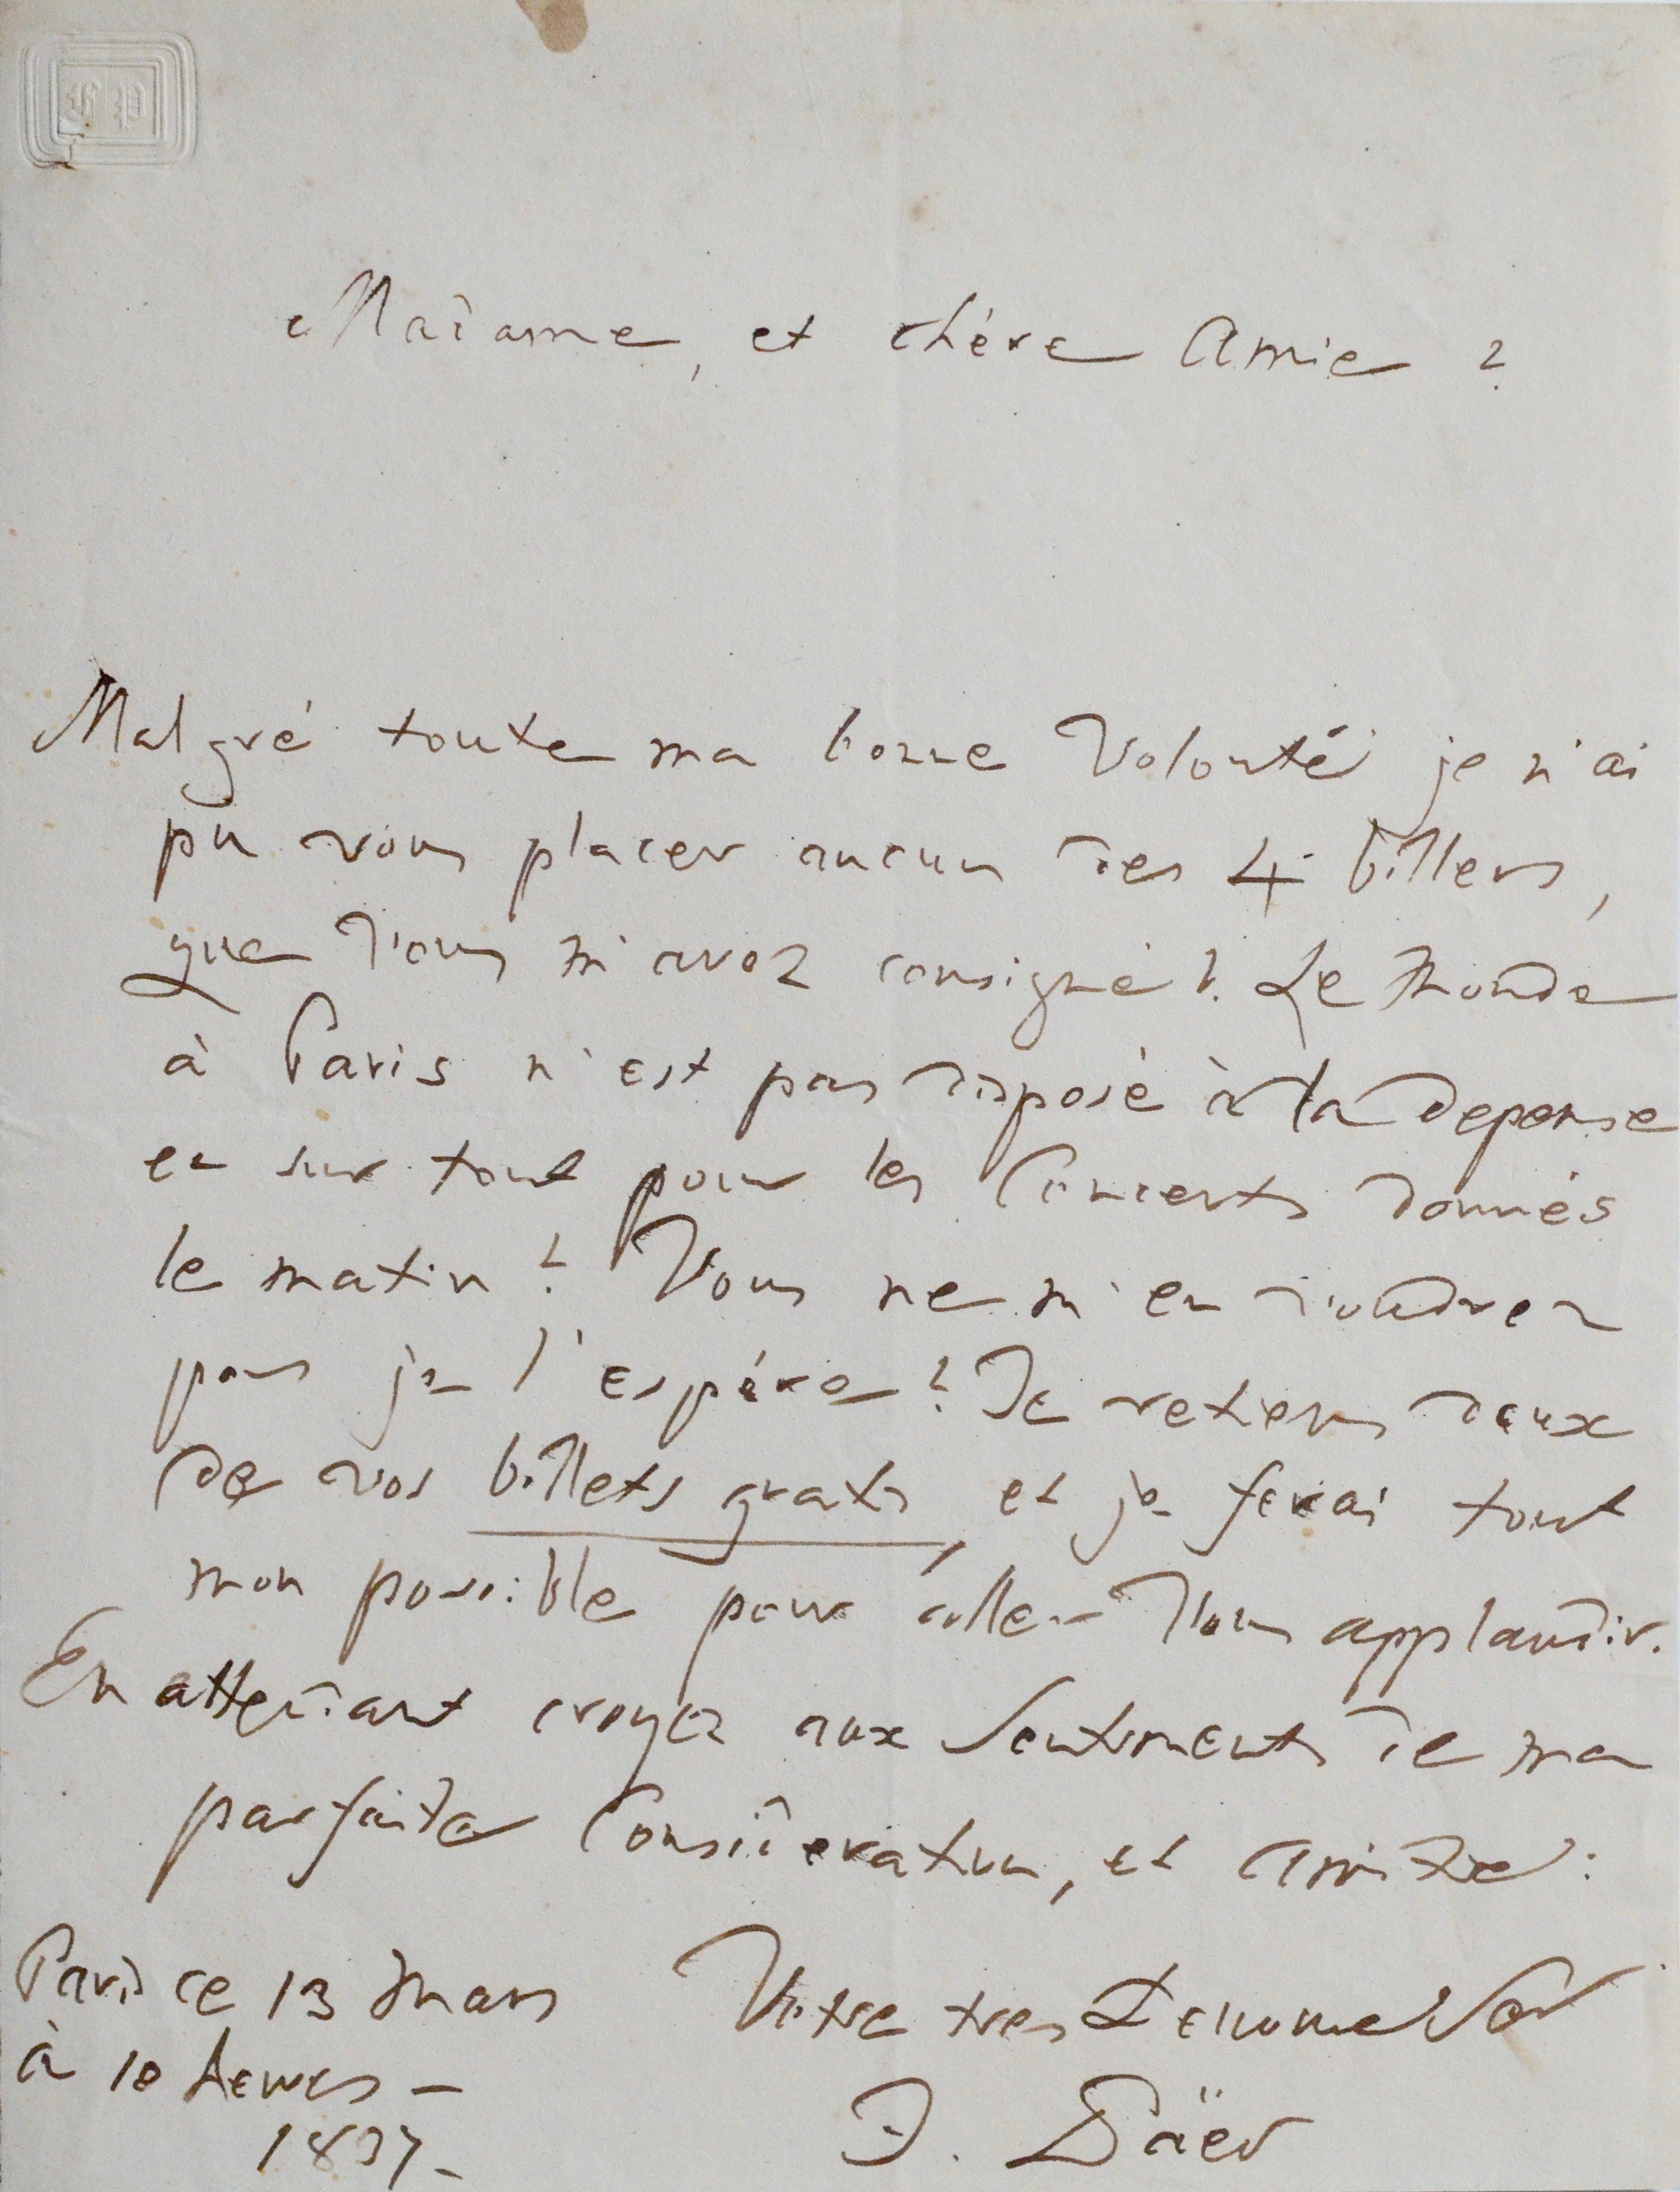 FP
Madame, et chère Amie ?
Malgré toute ma bonne Volonté je n'ai
pu vous placer aucun des 4 billets,
que Vous m'avez consigné ?. Le Monde
à Paris n'est pas disposé à la depense
et sur tout pour les Concerts donnés
le matin ! Vous ne m'en voudrez
pas je l'espére ? Je retiens deux
de vos billets gratis, et je ferai tout
mon possible pour aller Vous applaudir.
En attendant croyez aux Sentiments de ma
parfaite Consideration, et Amitié :
Paris ce 13 Mars
à 10 heures –
1837–
Votre tres Ser
F. Päer